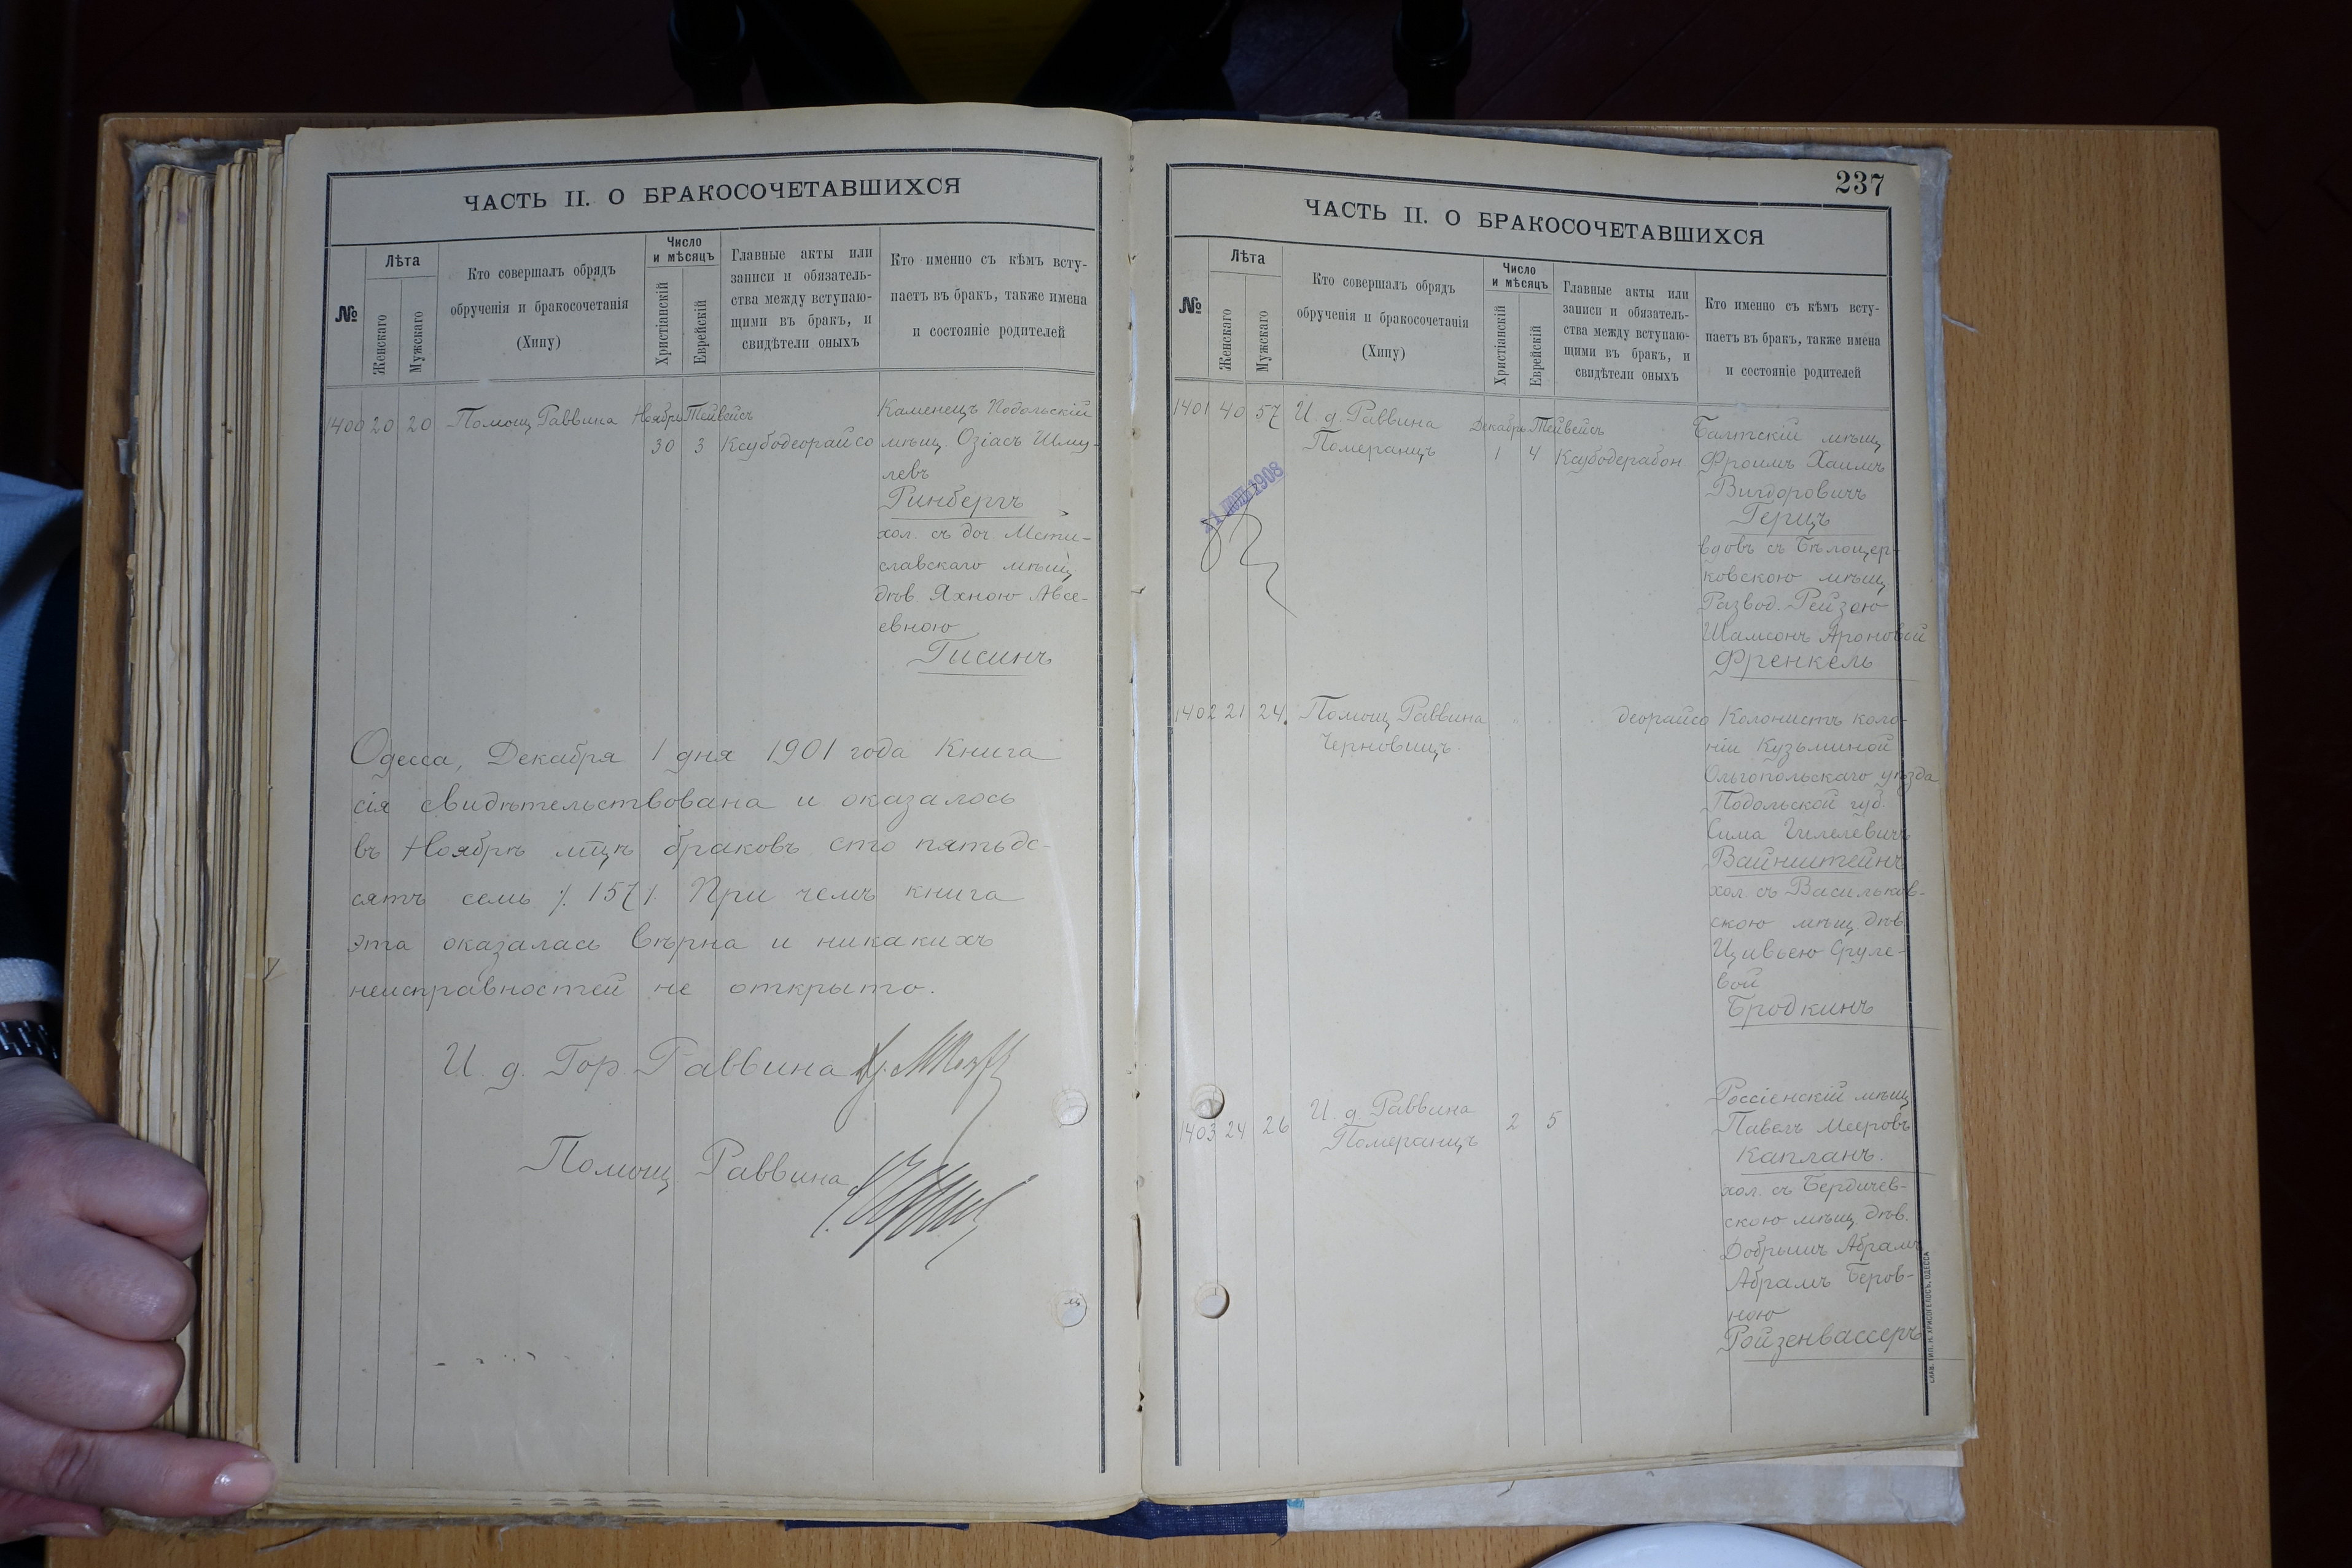 ЧАСТЬ II. О БРАКОСОЧЕТАВШИХСЯ
№
Лѣта
Женскаго
Мужскаго
Кто совершалъ обрядъ
обрученія и бракосочетанія
(Хипу)
Число
и мѣсяцъ
Христіанскій
Еврейскій
Главные акты или
записи и обязатель-
ства между вступаю-
щими въ бракъ, и
свидѣтели оныхъ
Кто именно съ кѣмъ всту-
паетъ въ бракъ, также имена
и состояніе родителей
1400 20 20 Помощ Раввина Ноябрь Тейвейсъ
30 3 Ксубодеорайсо
Каменецъ Подольскій
мѣщ. Озіасъ Шму-
левъ
Гинбергъ
хол. съ доч Мсти-
славскаго мѣщ
дѣв. Яхною Авсе-
евною
Гисинъ
Одесса, Декабря 1 дня 1901 года Книга
сія свидѣтельствована и оказалось
въ Ноябрѣ мцѣ браковъ сто пятьде-
сятъ семь /. 157/. При чемъ книга
эта оказалась вѣрна и никакихъ
неисправностей не открыто.
И. д. Гор. Раввина
Помощ. Раввина
237
ЧАСТЬ II. О БРАКОСОЧЕТАВШИХСЯ
№
Лѣта
Женскаго
Мужскаго
Кто совершалъ обрядъ
обрученія и бракосочетанія
(Хипу)
Число
и мѣсяцъ
Христіанскій
Еврейскій
Главные акты или
записи и обязатель-
ства между вступаю-
щими въ бракъ, и
свидѣтели оныхъ
Кто именно съ кѣмъ всту-
паетъ въ бракъ, также имена
и состояніе родителей
1401 40 57 И. д Раввина
Померанцъ
Декабрь Тейвейсъ
1 4 Ксубодерабон
1908
Балтскій мѣщ
Фроимъ Хаимъ
Вигдоровичъ
Герцъ
вдовъ съ Бѣлоцер-
ковскою мѣщ
Развод. Рейзею
Шамсонъ Ароновой
Френкель
1402 21 24. Помощ Раввина
Черновицъ.
деорайсо
Колонистъ коло-
ніи Кузьминой
Ольгопольскаго уѣзда
Подольской губ.
Сима Гилелевичъ
Вайнштейнъ
хол. съ Васильков-
скою мѣщ. дѣв
Цивьею Сруле-
вой
Бродкинъ
1403 24 26 И. д Раввина
Померанцъ
2 5
Россіенскій мѣщ
Павелъ Мееровъ
Капланъ.
хол. съ Бердичев-
скою мѣщ. дѣв.
Добрышъ Абрамъ
Абрамъ Беров-
ною
Ройзенвассеръ
СЛАВ. ТИП. Н. ХРИСОГЕЛОСЪ, ОДЕССА